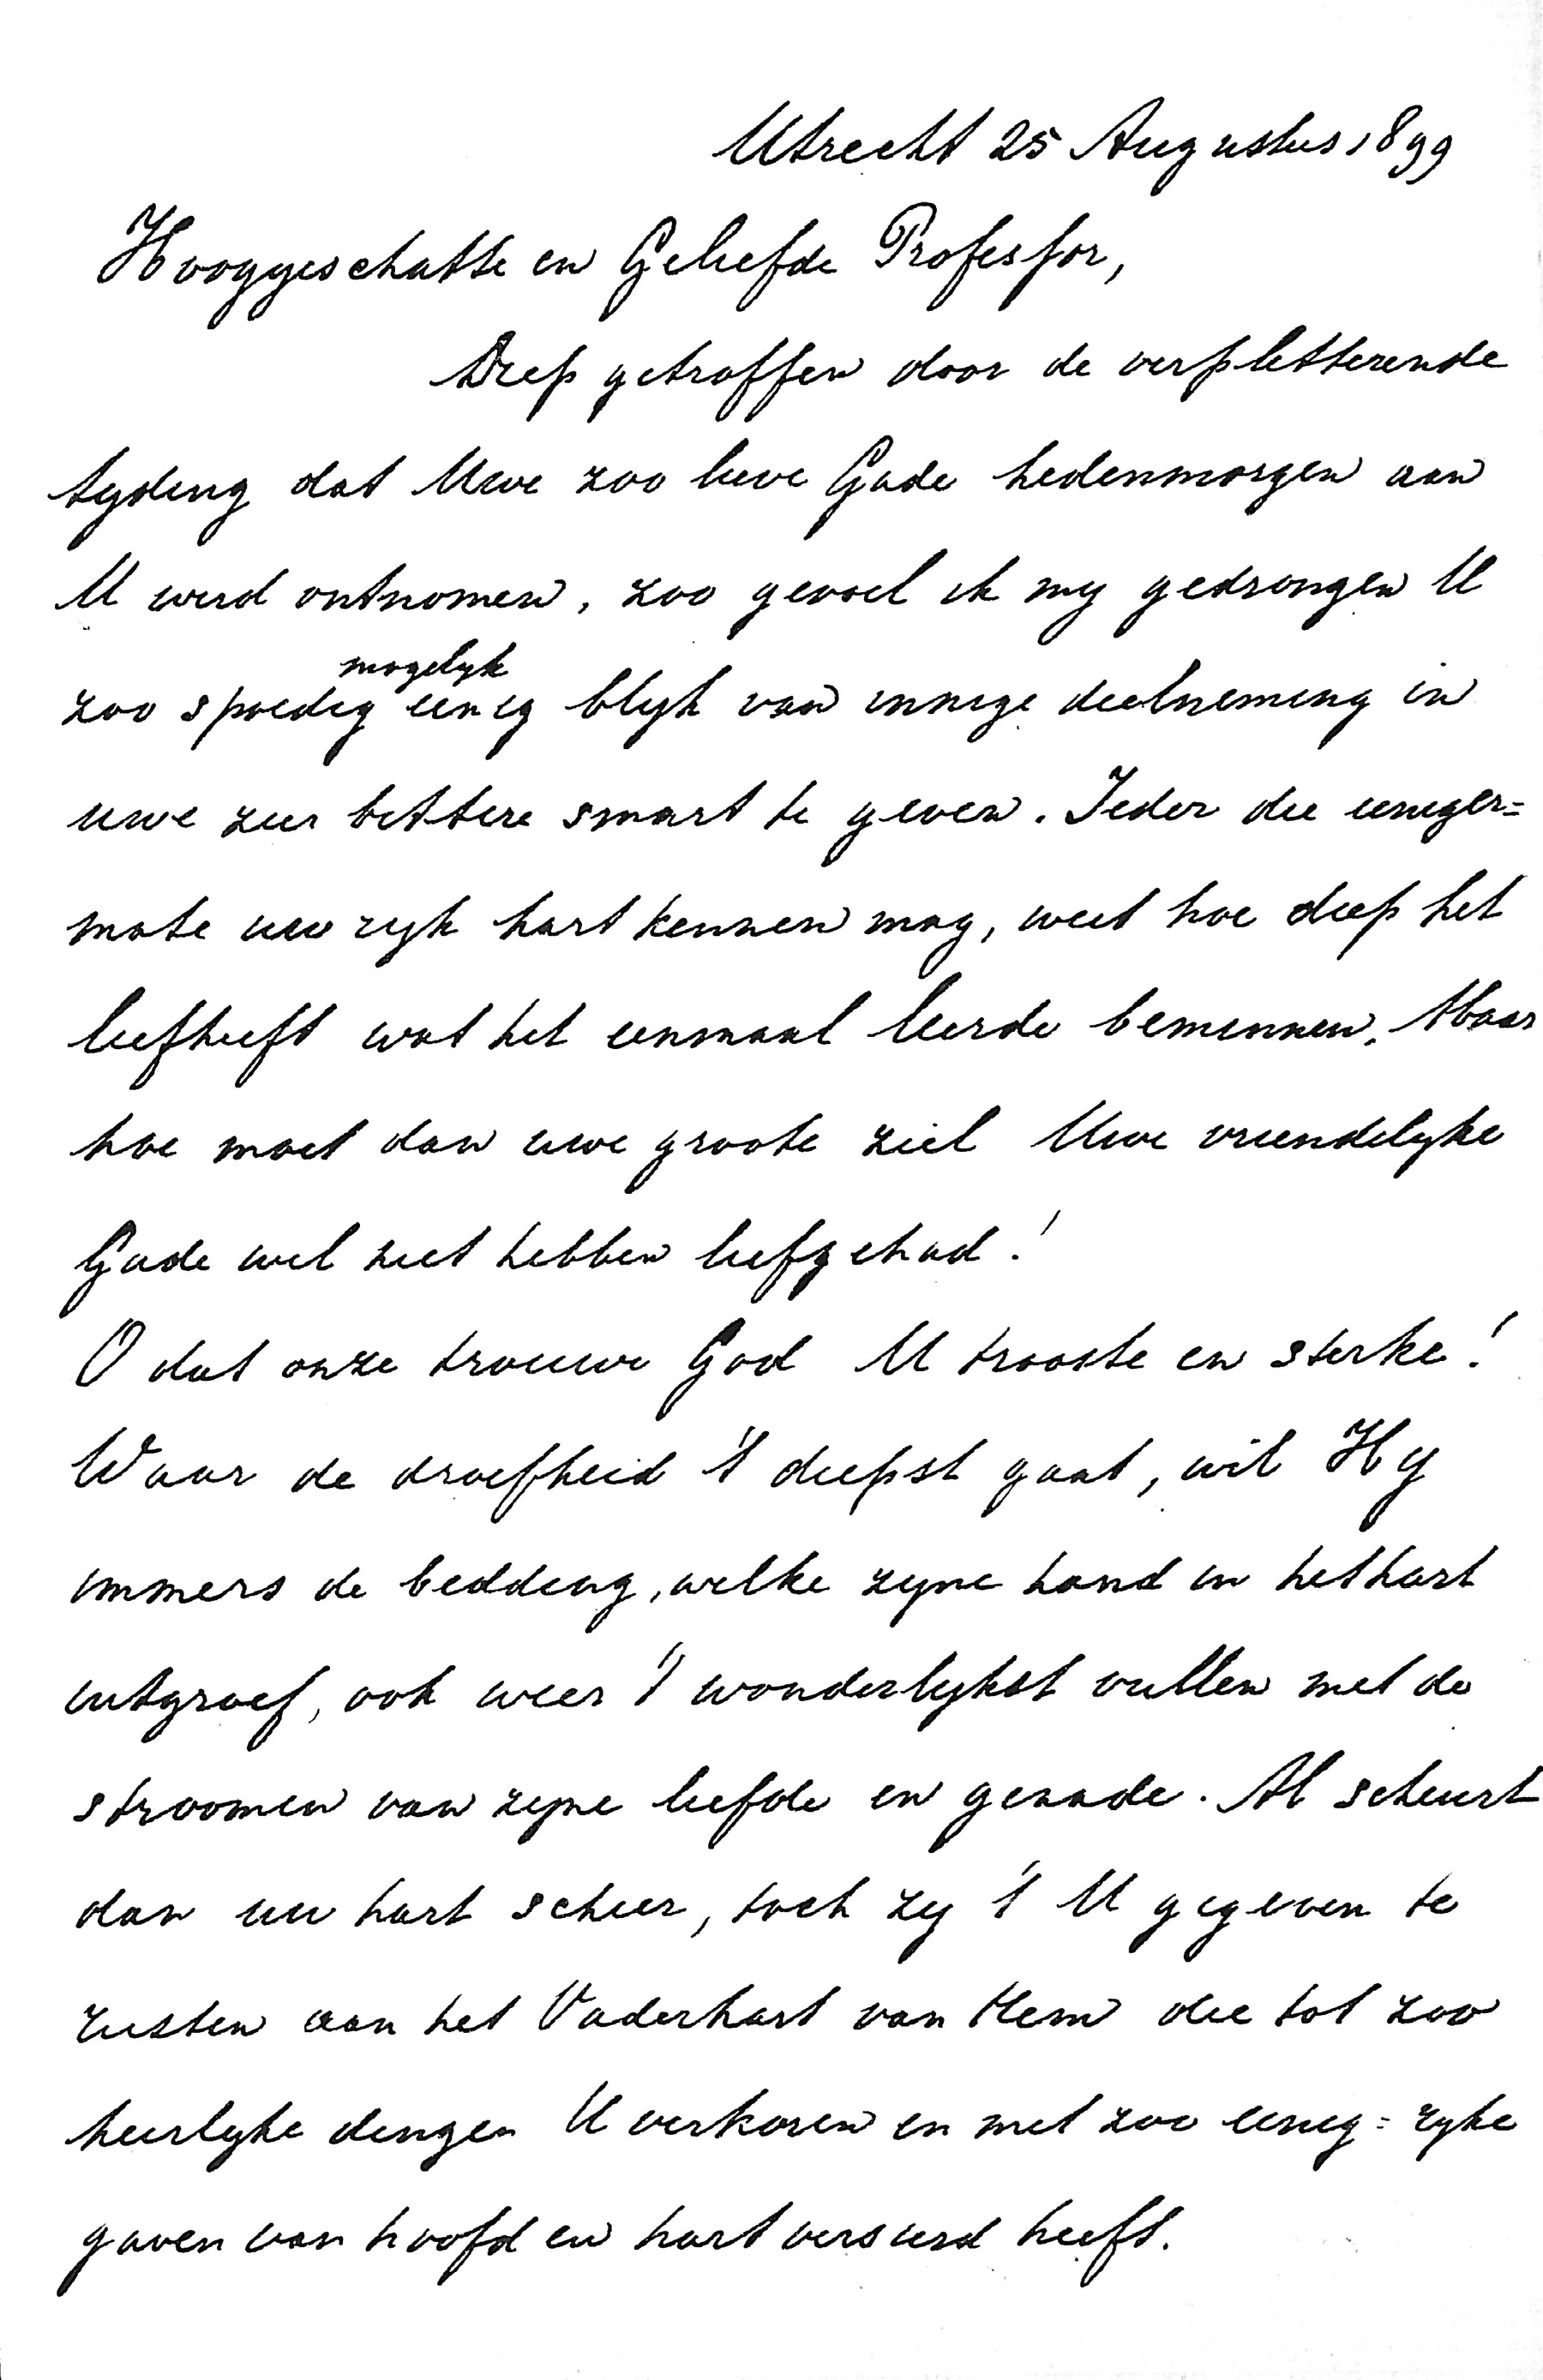 Utrecht 25 Augustus 1899
Hooggeschatte en Geliefde Professor,
Diep getroffen door de verpletterende
tyding dat Uwe zoo lieve Gade hedenmorgen aan
U werd ontnomen, zoo gevoel ik my gedrongen U
mogelyk
zoo spoedig eenig blyk van innige deelneming in
uwe zeer bittere smart te geven. Ieder die eeniger=
mate uw ryk hart kennen mag, weet hoe diep het
liefheeft wat het eenmaal leerde beminnen. Maar
hoe moet dan uwe groote ziel Uwe vriendelyke
Gade wel niet hebben liefgehad!
O dat onze trouwe God U trooste en sterke!
Waar de droefheid 't diepst gaat, wil Hy
immers de bedding, welke zyne hand in het hart
uitgroef, ook weer 't wonderlykst vullen met de
stroomen van zyne liefde en genade. Al scheurt
dan uw hart schier, toch zy 't U gegeven te
rusten aan het Vaderhart van Hem die tot zoo
heerlyke dingen U verkoren en met zoo eenig=ryke
gaven van hoofd en hart versierd heeft.